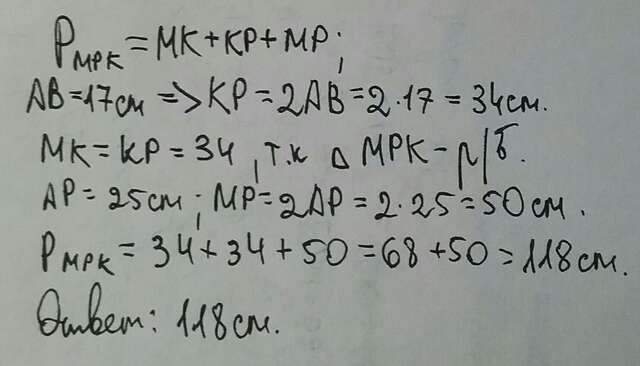 P_MPK = MK+KP+MP;
AB=17см => KP=2AB=2·17=34см.
MK=KP=34, т.к △ MPK – р/б.
AP=25см; MP=2AP=2·25=50см.
P_MPK = 34+34+50=68+50=118см.
Ответ: 118см.